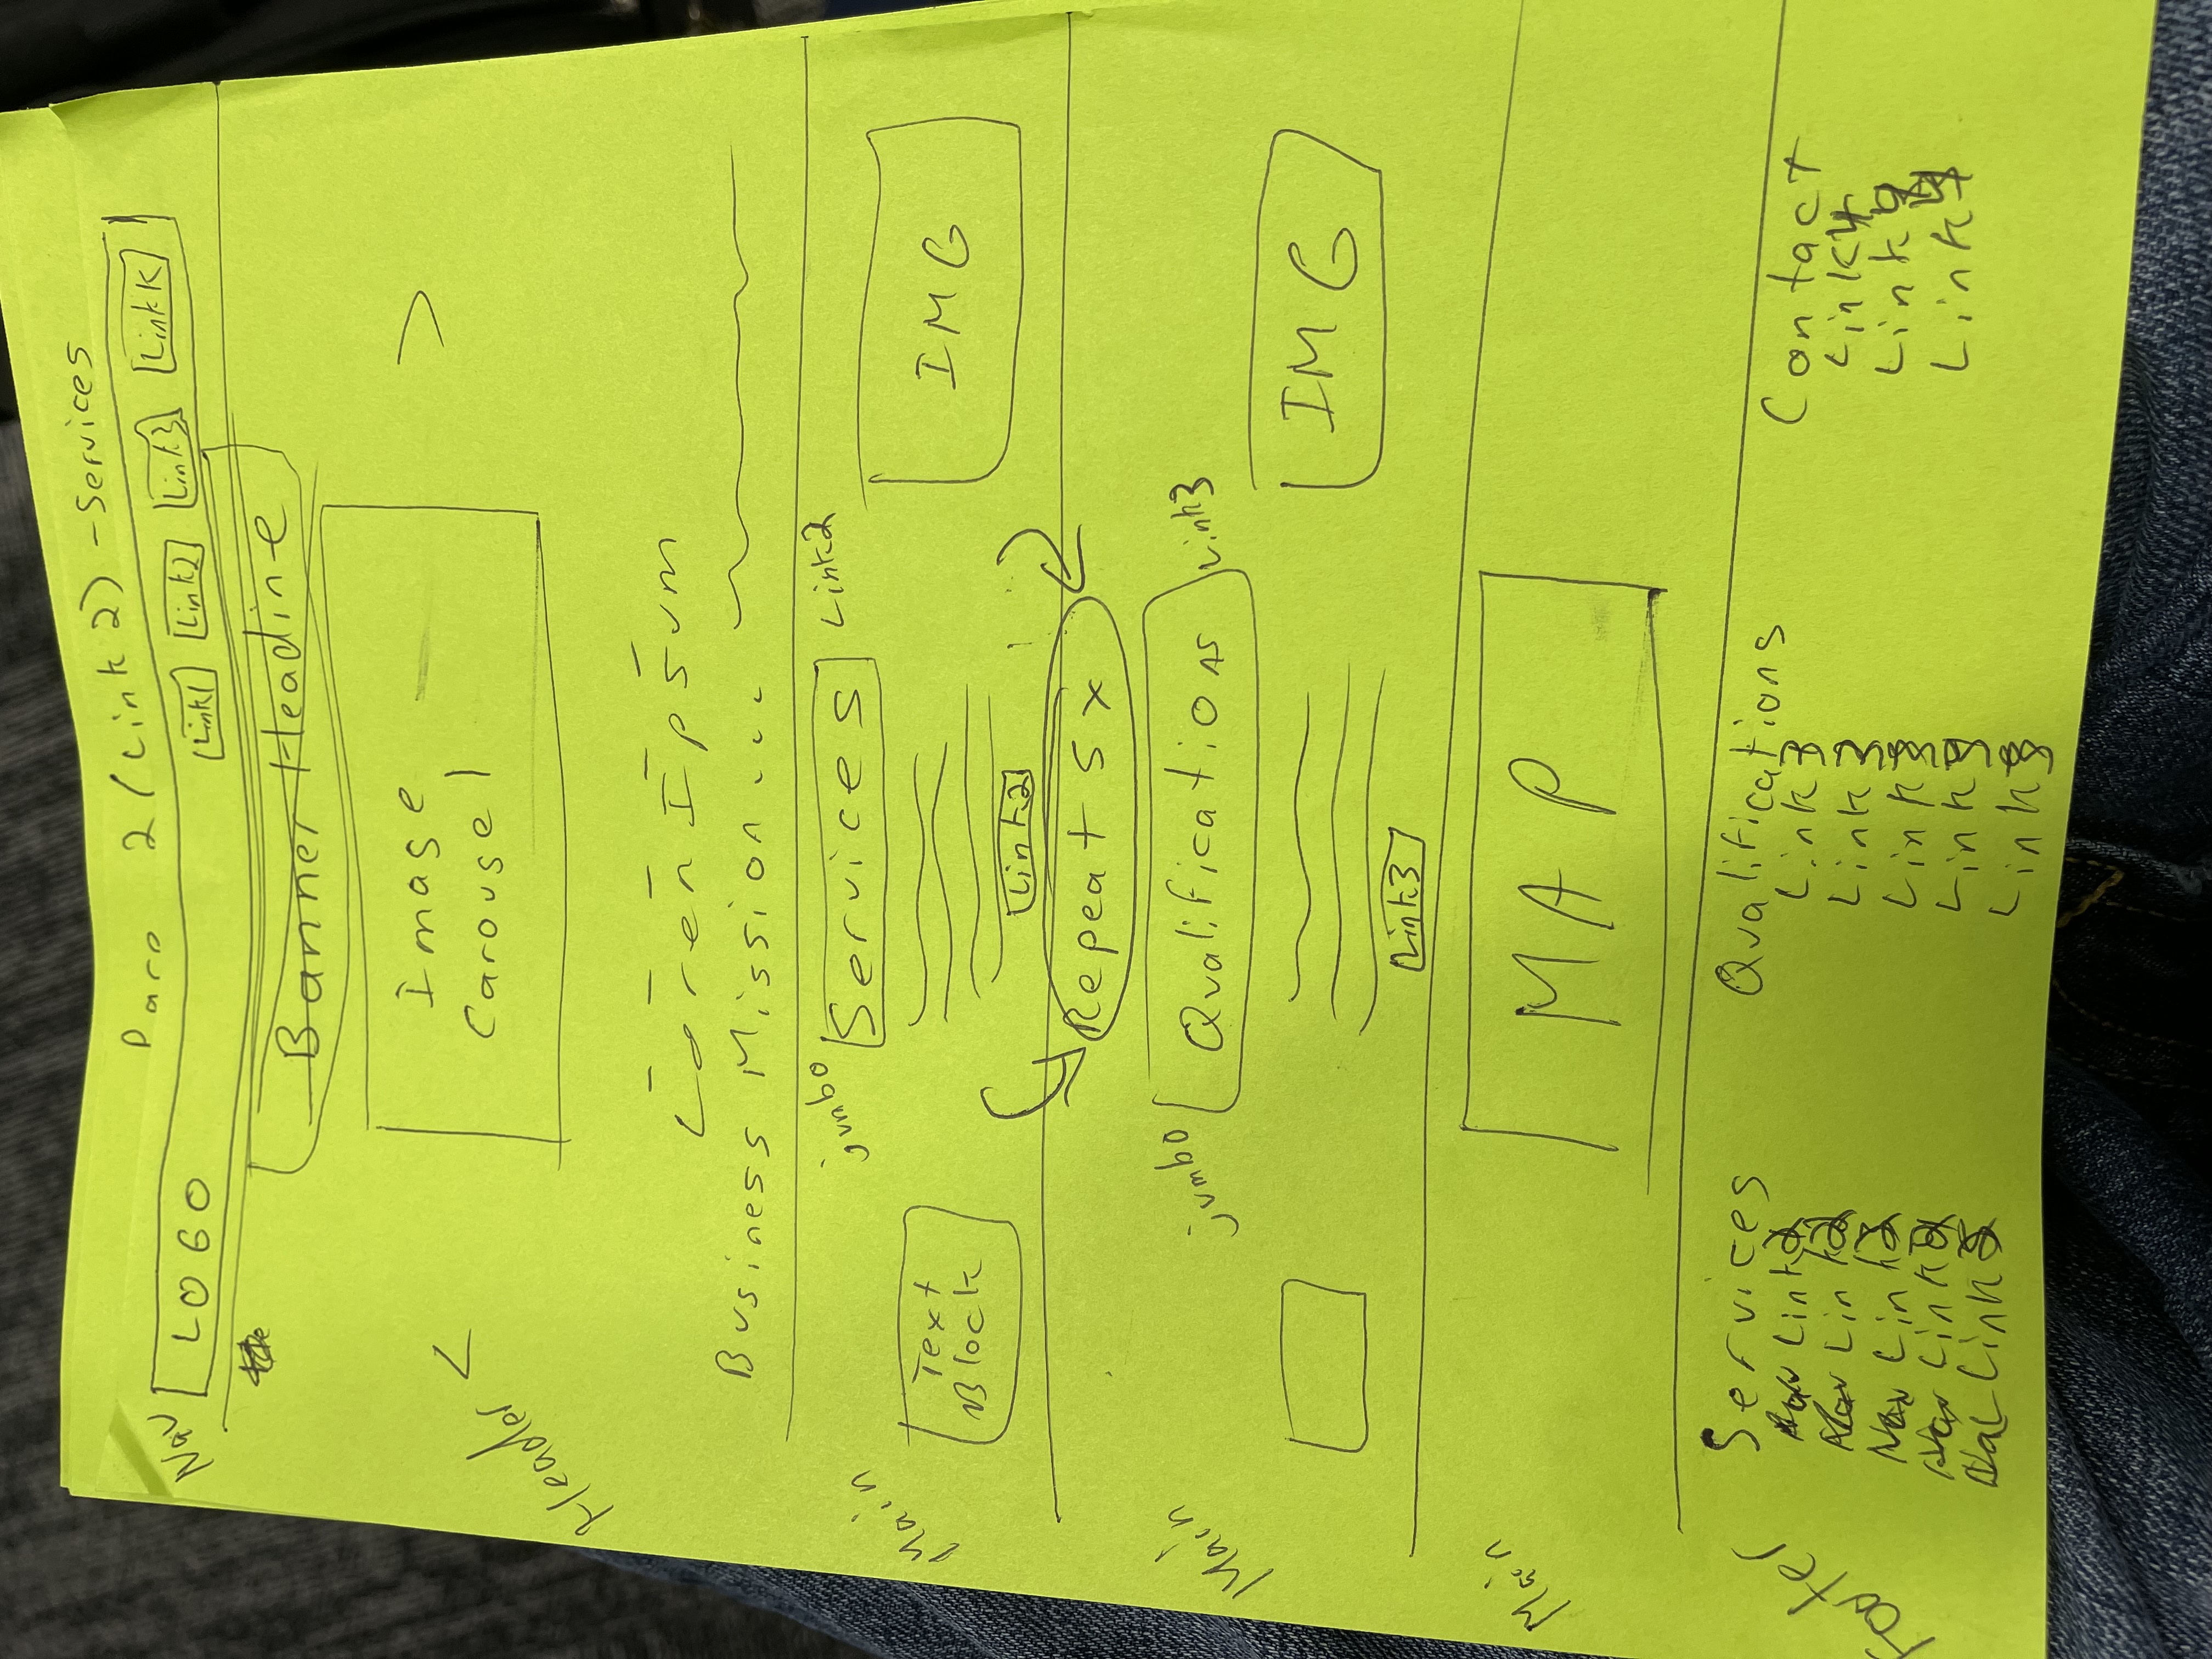 2 (Link 2) - Services
Nav
LOGO Link1 Link2 Link3 LinkK
Banner Headine
Header
< Image >
Carousel
Loren Ipsum
Business Mission...
Main
jumbo Services Link2
Text
Block
IMG
Link2
Repeat 5x
Main
jumbo Qualifications Link3
IMG
Link3
Main
MAP
Footer
Services
Link
Link 2
Link
Link
Link
Qualifications
Link 3
Link
Link
Link
Link
Contact
Link4
Link
Link